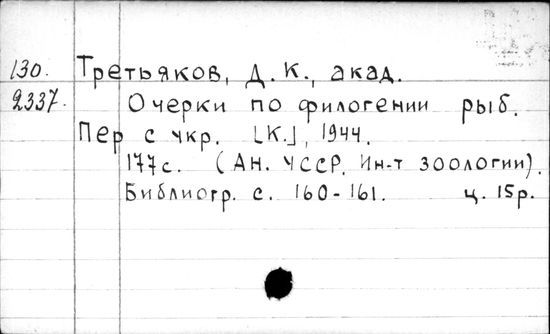 130. Третьяков, Д. К., акад.
2337. Очерки по филогении рыб.
Пер с укр. [К.], 1944.
177 с. (АН. УССР. Ин-т зоологии).
Библиогр. с. 160-161. ц. 15 р.